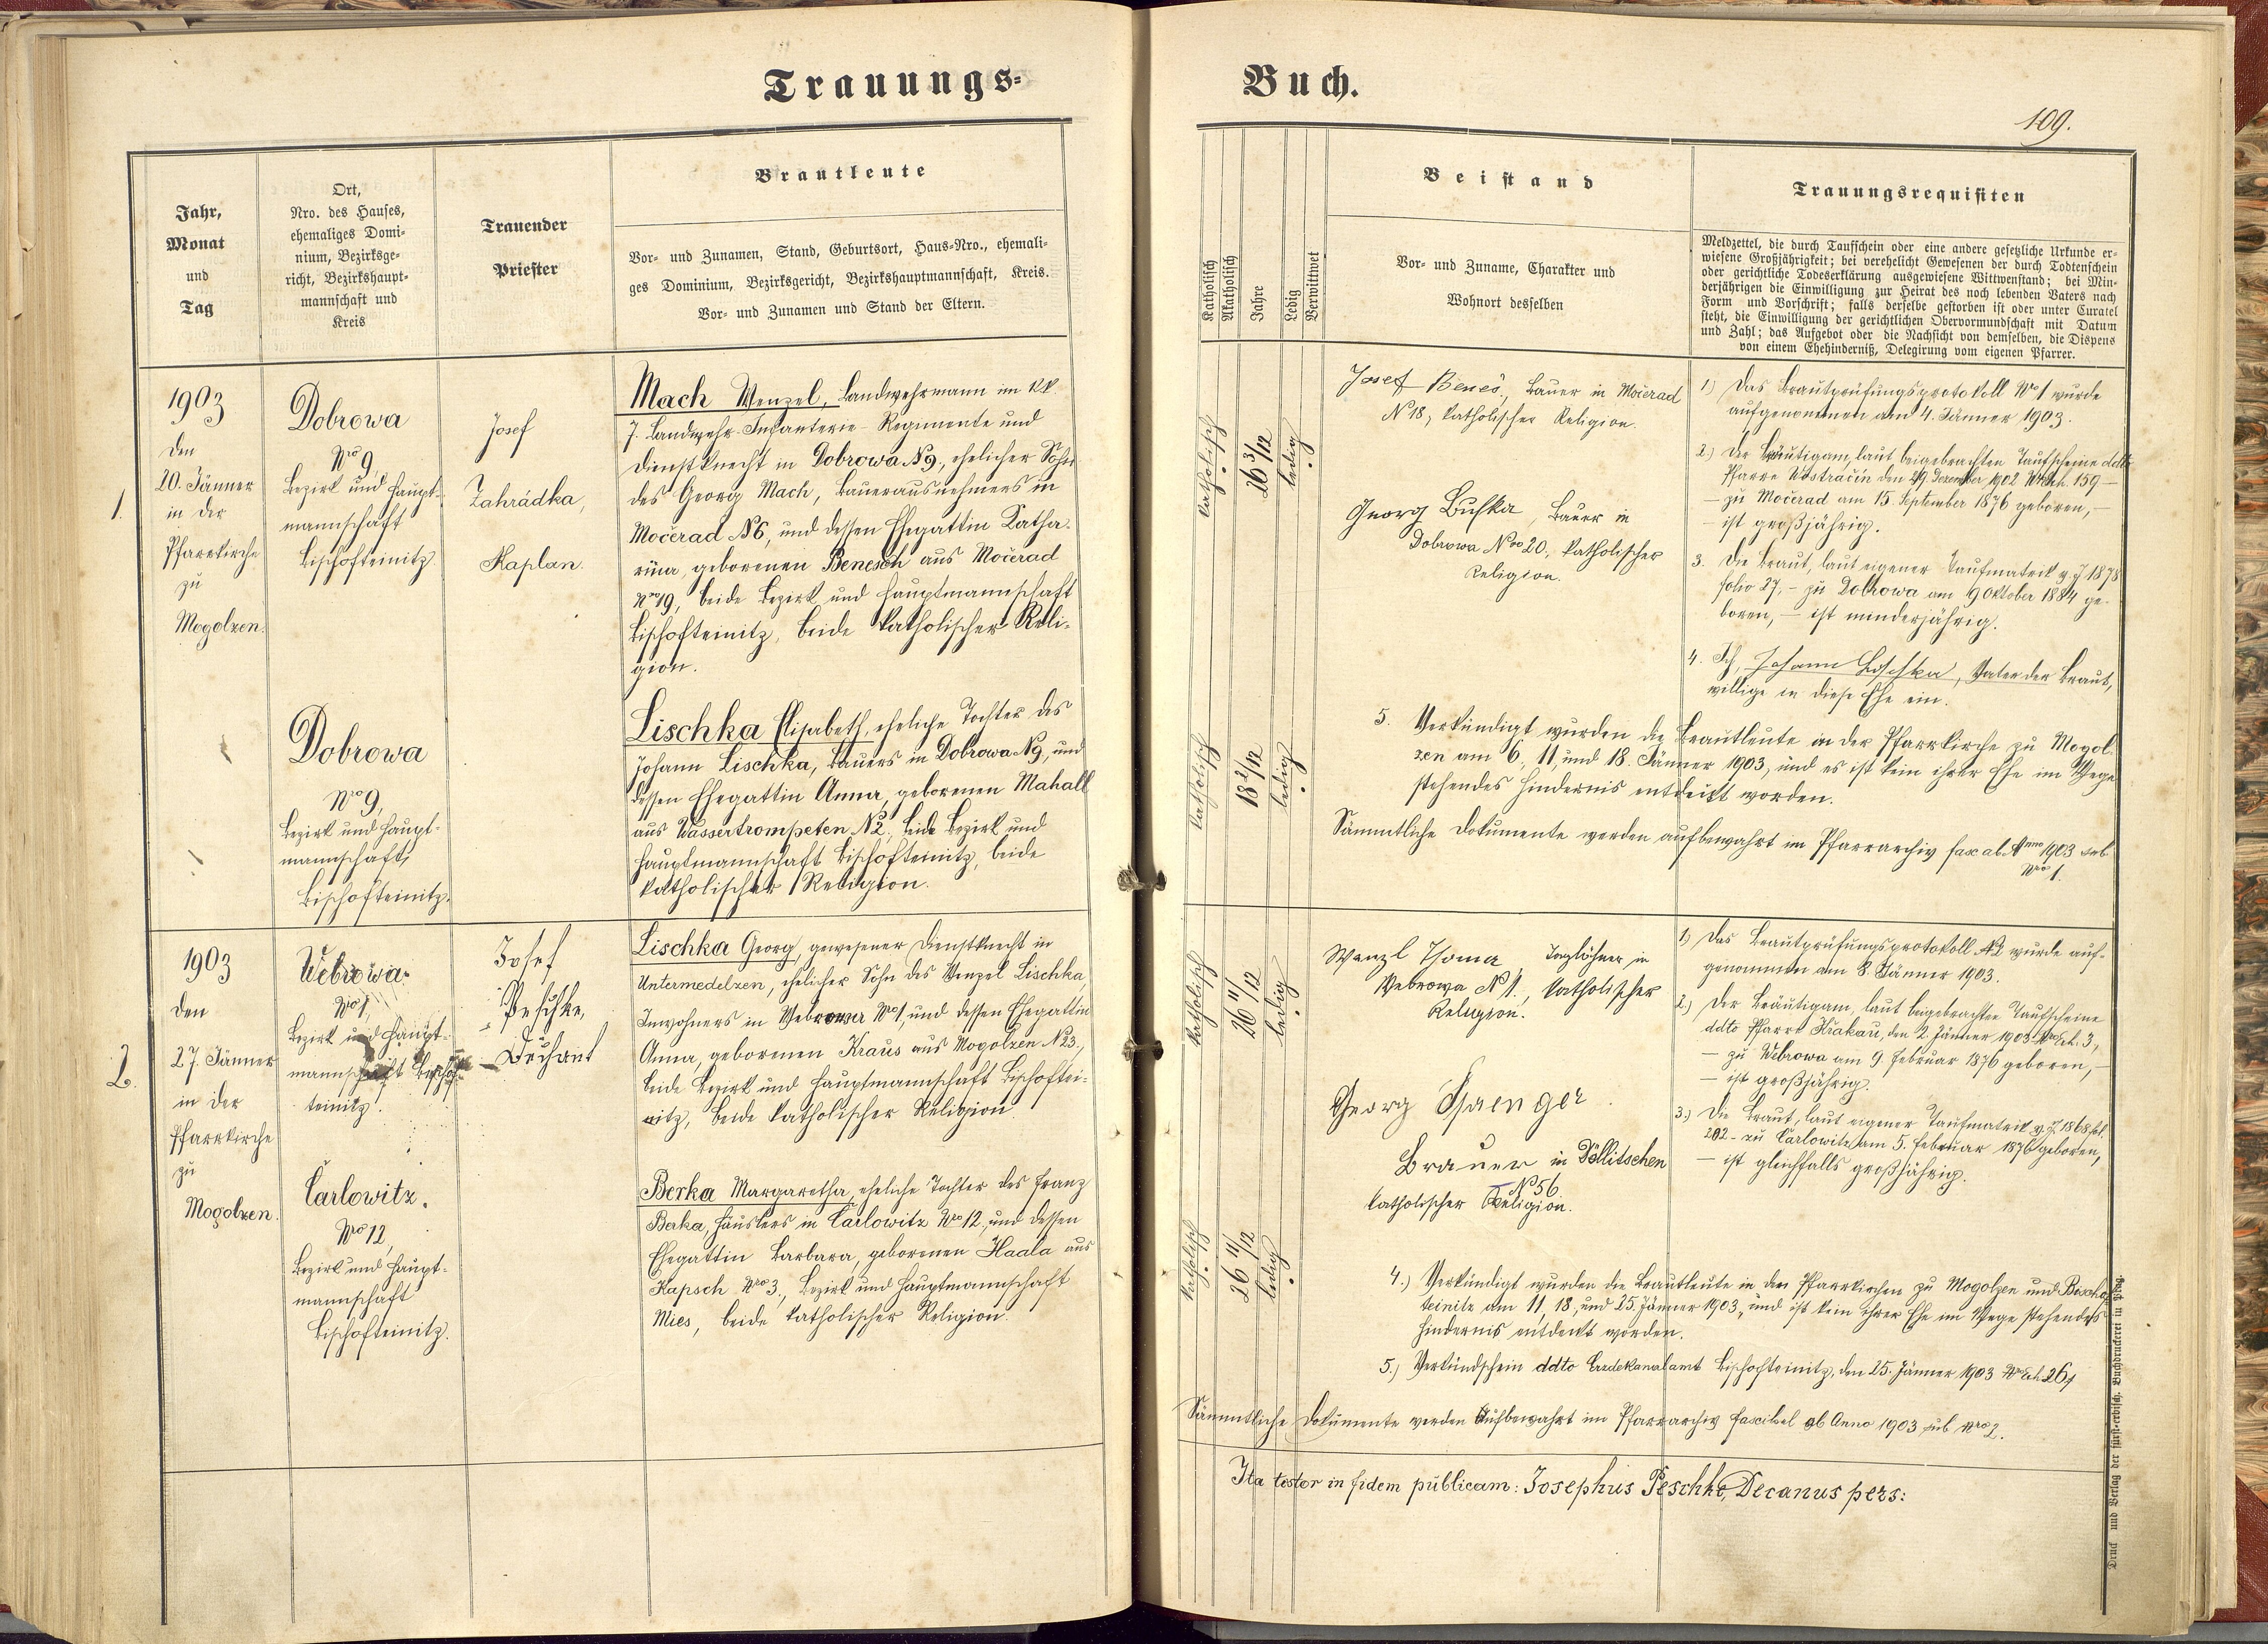 Trauungs-
Buch.
109.
Jahr,
Monat
und
Tag
Ort,
Nro. des Hauses,
ehemaliges Domi-
nium, Bezirksge-
richt, Bezirkshaupt-
mannschaft und
Kreis
Trauender
Priester
Brautleute
Vor- und Zunamen, Stand, Geburtsort, Haus-Nro., ehemali-
ges Dominium, Bezirksgericht, Bezirkshauptmannschaft, Kreis.
Vor- und Zunamen und Stand der Eltern.
Katholisch
Akatholisch
Jahre
Ledig
Verwittwet
Beistand
Vor- und Zuname, Charakter und
Wohnort desselben
Trauungsrequisiten
Meldzettel, die durch Taufschein oder eine andere gesetzliche Urkunde er-
wiesene Großjährigkeit; bei verehelicht Gewesenen der durch Todtenschein
oder gerichtliche Todeserklärung ausgewiesene Wittwenstand; bei Min-
derjährigen die Einwilligung zur Heirat des noch lebenden Vaters nach
Form und Vorschrift; falls derselbe gestorben ist oder unter Curatel
steht, die Einwilligung der gerichtlichen Obervormundschaft mit Datum
und Zahl; das Aufgebot oder die Nachsicht von demselben, die Dispens
von einem Ehehinderniß, Delegirung vom eigenen Pfarrer.
1.
1903
den
20. Jänner
in der
Pfarrkirche
zu
Mogolzen.
Dobrowa
Nro 9,
Bezirk und Haupt-
mannschaft
Bischofteinitz.
Josef
Zahrádka,
Kaplan.
Mach Wenzel, Landwehrmann im k.k.
7. Landwehr-Infanterie-Regimente und
Dienstknecht in Dobrowa N 9., ehelicher Sohn
des Georg Mach, Bauerausnehmers in
Močerad N 6, und dessen Ehegattin Katha-
rina, geborenen Benesch aus Močerad
Nro 19, beide Bezirk und Hauptmannschaft
Bischofteinitz, beide katholischer Reli-
gion.
Dobrowa
Nro 9,
Bezirk und Haupt-
mannschaft,
Bischofteinitz.
Lischka Elisabeth, eheliche Tochter des
Johann Lischka, Bauers in Dobrowa N 9, und
dessen Ehegattin Anna, geborenen Mahall
aus Wassertrompeten N 2, beide Bezirk und
Hauptmannschaft Bischofteinitz, beide
katholischer Religion.
katholisch
26 3/12
ledig
katholisch
18 2/12
ledig
Josef Beneš, Bauer in Močerad
N 18, katholischer Religion.
Georg Buschka, Bauer in
Dobrowa Nro 20, katholischer
Religion.
1) Das Brautprüfungsprotokoll No 1 wurde
aufgenommen am 4. Jänner 1903.
2.) Der Bräutigam, laut beigebrachten Taufscheine ddto
Pfarre Wostračin den 29. Dezember 1902 159 –
– zu Močerad am 15. September 1876 geboren, –
– ist großjährig.
3. Die Braut, laut eigener Taufmatrik v. J. 1878
folio 27, – zu Dobrowa am 9 Oktober 1884 ge-
boren, – ist minderjährig.
4. Ich, Johann Lischka, Vater der Braut,
willige in diese Ehe ein.
5. Verkündigt wurden die Brautleute in der Pfarrkirche zu Mogol-
zen am 6, 11, und 18. Jänner 1903, und es ist kein ihrer Ehe im Wege
stehendes Hindernis entdeckt worden.
Sämmtliche Dokumente werden aufbewahrt im Pfarrarchiv fasc ab Anno 1903 sub
Nro 1.
2.
1903
den
27. Jänner
in der
Pfarrkirche
zu
Mogolzen.
Webrowa
Nro 1,
Bezirk und Haupt-
mannschaft Bischof-
teinitz.
Josef
Peschke,
Dechant
Lischka Georg, gewesener Dienstknecht in
Untermedelzen, ehelicher Sohn des Wenzel Lischka,
Inwohners in Webrowa Nro 1, und dessen Ehegattin
Anna, geborenen Kraus aus Mogolzen N 23.,
beide Bezirk und Hauptmannschaft Bischoftei-
nitz, beide katholischer Religion.
Carlowitz.
Nro 12,
Bezirk und Haupt-
mannschaft
Bischofteinitz.
Berka Margaretha, eheliche Tochter des Franz
Berka, Häuslers in Carlowitz Nro 12, und dessen
Ehegattin Barbara, geborenen Haala aus
Kapsch Nro 3., Bezirk und Hauptmannschaft
Mies, beide katholischer Religion.
katholisch
26 11/12
ledig
katholisch
26 11/12
ledig
Wenzl Thoma Taglöhner in
Webrowa N 1., katholischer
Religion.
Georg Saenger
Brauer in Döllitschen
N 56
katholischer Religion.
1) Das Brautprüfungsprotokoll N 2 wurde auf-
genommen am 8. Jänner 1903.
2.) Der Bräutigam, laut beigebrachten Taufscheine
ddto Pfarre Krakau, den 2. Jänner 1903 3,
– zu Webrowa am 9. Februar 1876 geboren, –
– ist großjährig.
3.) Die Braut, laut eigener Taufmatrik v. J. 1868 fol.
202 – zu Carlowitz am 5. Februar 1876 geboren,
– ist gleichfalls großjährig.
4.) Verkündigt wurden die Brautleute in den Pfarrkirchen zu Mogolzen und Bischof-
teinitz am 11, 18, und 25. Jänner 1903, und ist kein ihrer Ehe im Wege stehendes
Hindernis entdeckt worden.
5.) Verkündschein ddto Erzdekanalamt Bischofteinitz, den 25. Jänner 1903
Sämmtliche Dokumente werden aufbewahrt im Pfarrarchiv fascikel ab Anno 1903 sub Nro 2.
Ita testor in fidem publicam: Josephus Peschke, Decanus pers:
Druck und Verlag der fürst-erbisch. Buchdruckerei in Prag.